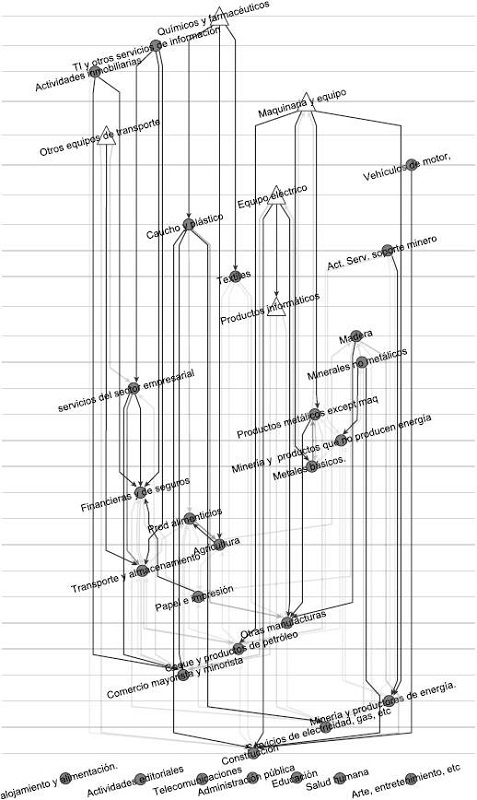 Químicos y farmacéuticos
TI y otros servicios de información
Actividades inmobiliarias
Maquinaria y equipo
Otros equipos de transporte
Vehículos de motor,
Equipo eléctrico
Caucho y plástico
Act. Serv. soporte minero
Textiles
Productos informáticos
Madera
Minerales no metálicos
servicios del sector empresarial
Productos metálicos except maq
Minería y productos que no producen energía
Metales básicos.
Financieras y de seguros
Prod alimenticios
Agricultura
Transporte y almacenamiento
Papel e impresión
Otras manufacturas
Coque y productos de petróleo
Comercio mayorista y minorista
Minería y productores de energía.
Servicios de electricidad, gas, etc
Construcción
alojamiento y alimentación.
Actividades editoriales
Telecomunicaciones
Administración pública
Educación
Salud humana
Arte, entretenimiento, etc